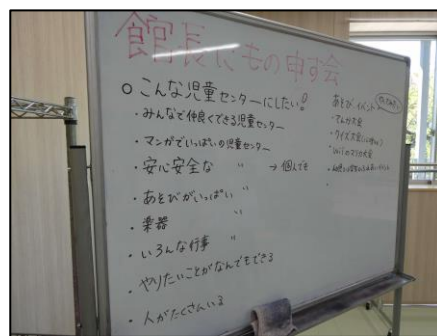 館長にもの申す会
○こんな児童センターにしたい!
・みんなで仲良くできる児童センター
・マンガでいっぱいの児童センター
・安心安全な 〃 → 個人でも
・あそびがいっぱい 〃
・楽器 〃
・いろんな行事 〃
・やりたいことがなんでもできる
・人がたくさんいる
あそび・イベント
・クイズ大会
・wiiのマリカ大会